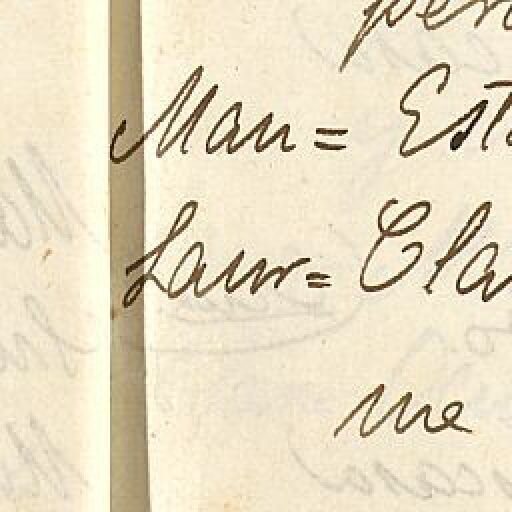 per
Man= Est
Laur= Cla
me